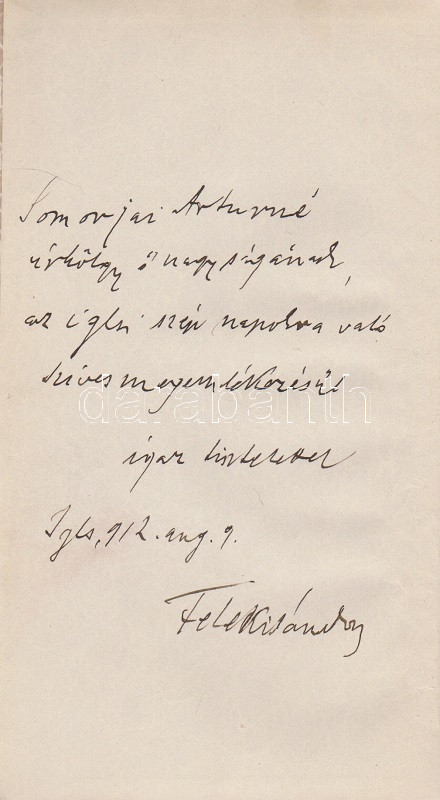 Somorjai Arturné
úrhölgy ő nagyságának,
az iglsi szép napokra való
szíves megemlékezésül
igaz tisztelettel
Igls, 912. aug. 9.
Feleki Sándor
darabanth